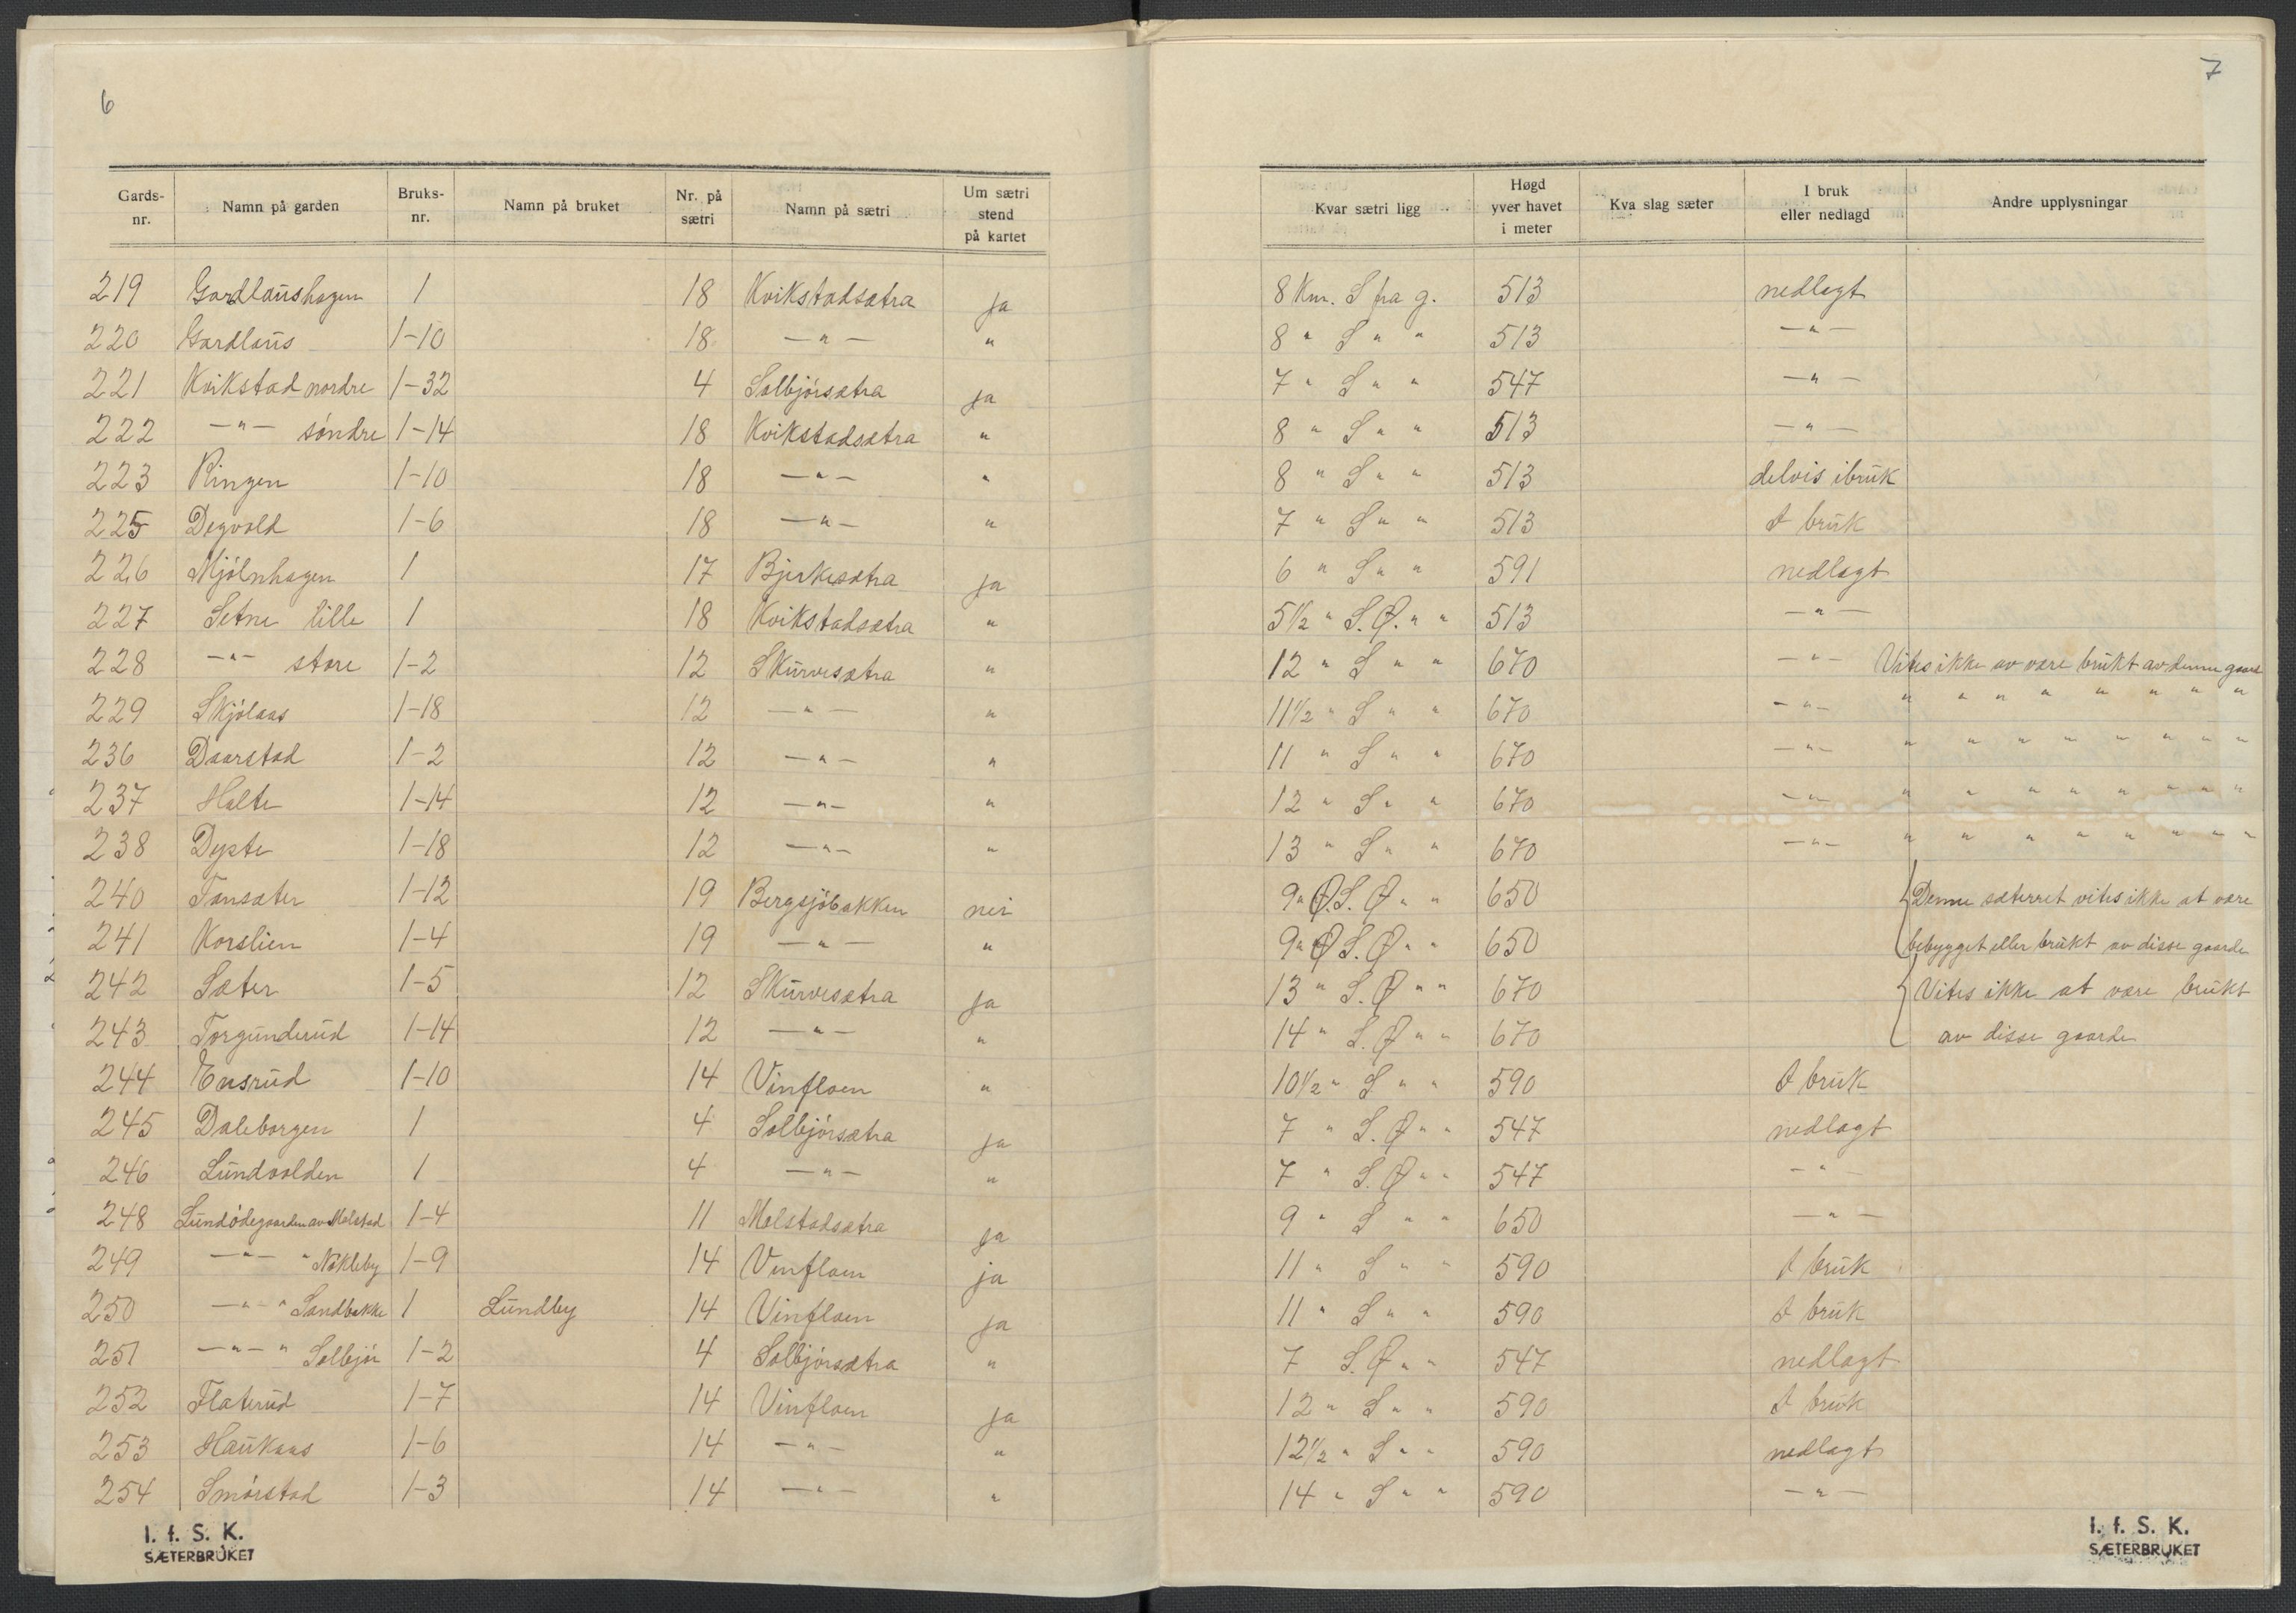 6
Gards-nr. | Namn på garden | Bruks-nr. | Namn på bruket | Nr. på sætri | Namn på sætri | Um sætri stend på kartet
219 Gardlaushagen 1 18 Kvikstadsætra ja
220 Gardlaus 1-10 18 -"- "
221 Kvikstad nordre 1-32 4 Solbjörsætra ja
222 -"- söndre 1-14 18 Kvikstadsætra "
223 Ringen 1-10 18 -"- "
225 Degvold 1-6 18 -"- "
226 Mjölnhagen 1 17 Bjerkesætra ja
227 Setne lille 1 18 Kvikstadsætra "
228 -"- store 1-2 12 Skurvesætra "
229 Skjölaas 1-18 12 -"- "
236 Daarstad 1-2 12 -"- "
237 Holte 1-14 12 -"- "
238 Dyste 1-18 12 -"- "
240 Tønsæter 1-12 19 Bergsjöbakken nei
241 Korslien 1-4 19 -"- "
242 Sæter 1-5 12 Skurvesætra ja
243 Torgunderud 1-14 12 -"- "
244 Ensrud 1-10 14 Vinfloen "
245 Daleborgen 1 4 Solbjörsætra ja
246 Lundvolden 1 4 -"- "
248 Lundödegaarden av Molstad 1-4 11 Molstadsætra ja
249 -"- " Nökleby 1-9 14 Vinfloen ja
250 -"- " Sandbakke 1 Lundby 14 Vinfloen ja
251 -"- " Solbjör 1-2 4 Solbjörsætra "
252 Flaterud 1-7 14 Vinfloen ja
253 Haukaas 1-6 14 -"- "
254 Smörstad 1-3 14 -"- "
I. f. S. K.
SÆTERBRUKET
7
Kvar sætri ligg | Høgd yver havet i meter | Kva slag sæter | I bruk eller nedlagd | Andre upplysningar
8 Km. S fra g. 513 nedlagt
8 " S " " 513 -"-
7 " S " " 547 -"-
8 " S " " 513 -"-
8 " S " " 513 delvis ibruk
7 " S " " 513 I bruk
6 " S " " 591 nedlagt
5 1/2 " S.Ø. " " 513 -"-
12 " S " " 670 -"- Vites ikke av være brukt av denne gaard
11 1/2 " S " " 670 -"- " " " " " " " "
11 " S " " 670 -"- " " " " " " " "
12 " S " " 670 -"- " " " " " " " "
13 " S " " 670 -"- " " " " " " " "
9 " Ø.S.Ø " " 650 Denne sæterret vites ikke at være
9 " Ø S.Ø " " 650 bebygget eller brukt av disse gaarde
13 " S.Ø " " 670 Vites ikke at være brukt
14 " S.Ø " " 670 av disse gaarde
10 1/2 " S " " 590 I bruk
7 " S.Ø " " 547 nedlagt
7 " S.Ø " " 547 -"-
9 " S " " 650 -"-
11 " S " " 590 I bruk
11 " S " " 590 I bruk
7 S.Ø " " 547 nedlagt
12 " S " " 590 I bruk
12 1/2 " S " " 590 nedlagt
14 " S " " 590 -"-
I. f. S. K.
SÆTERBRUKET